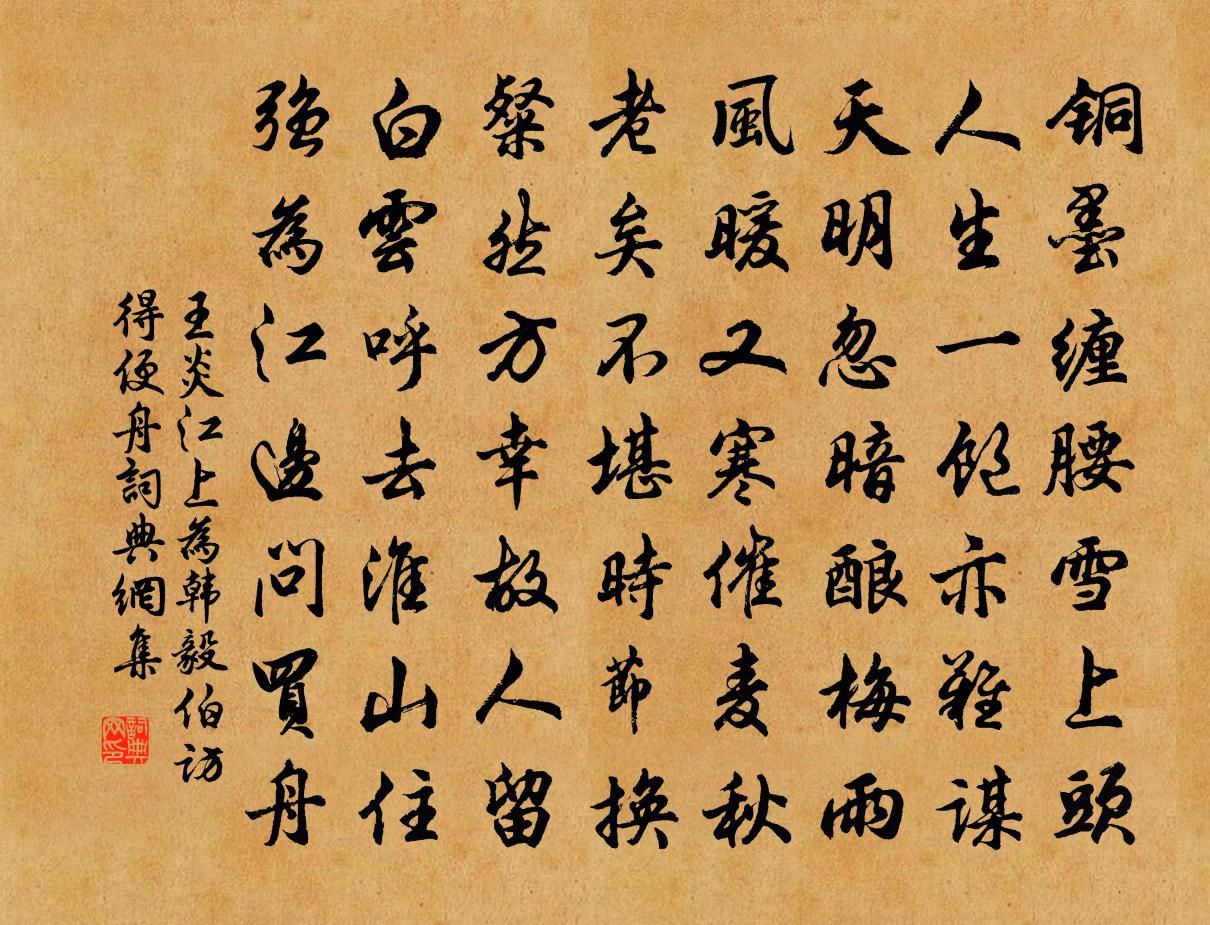 銅墨纏腰雪上頭
人生一飽亦難謀
天明忽暗酿梅雨
風暖又寒催麦秋
老矣不堪時節換
粲然方幸故人留
白雲呼去淮山住
強為江邊問買舟
王炎江上為韩毅伯訪
得便舟詞典網集
詞典网印